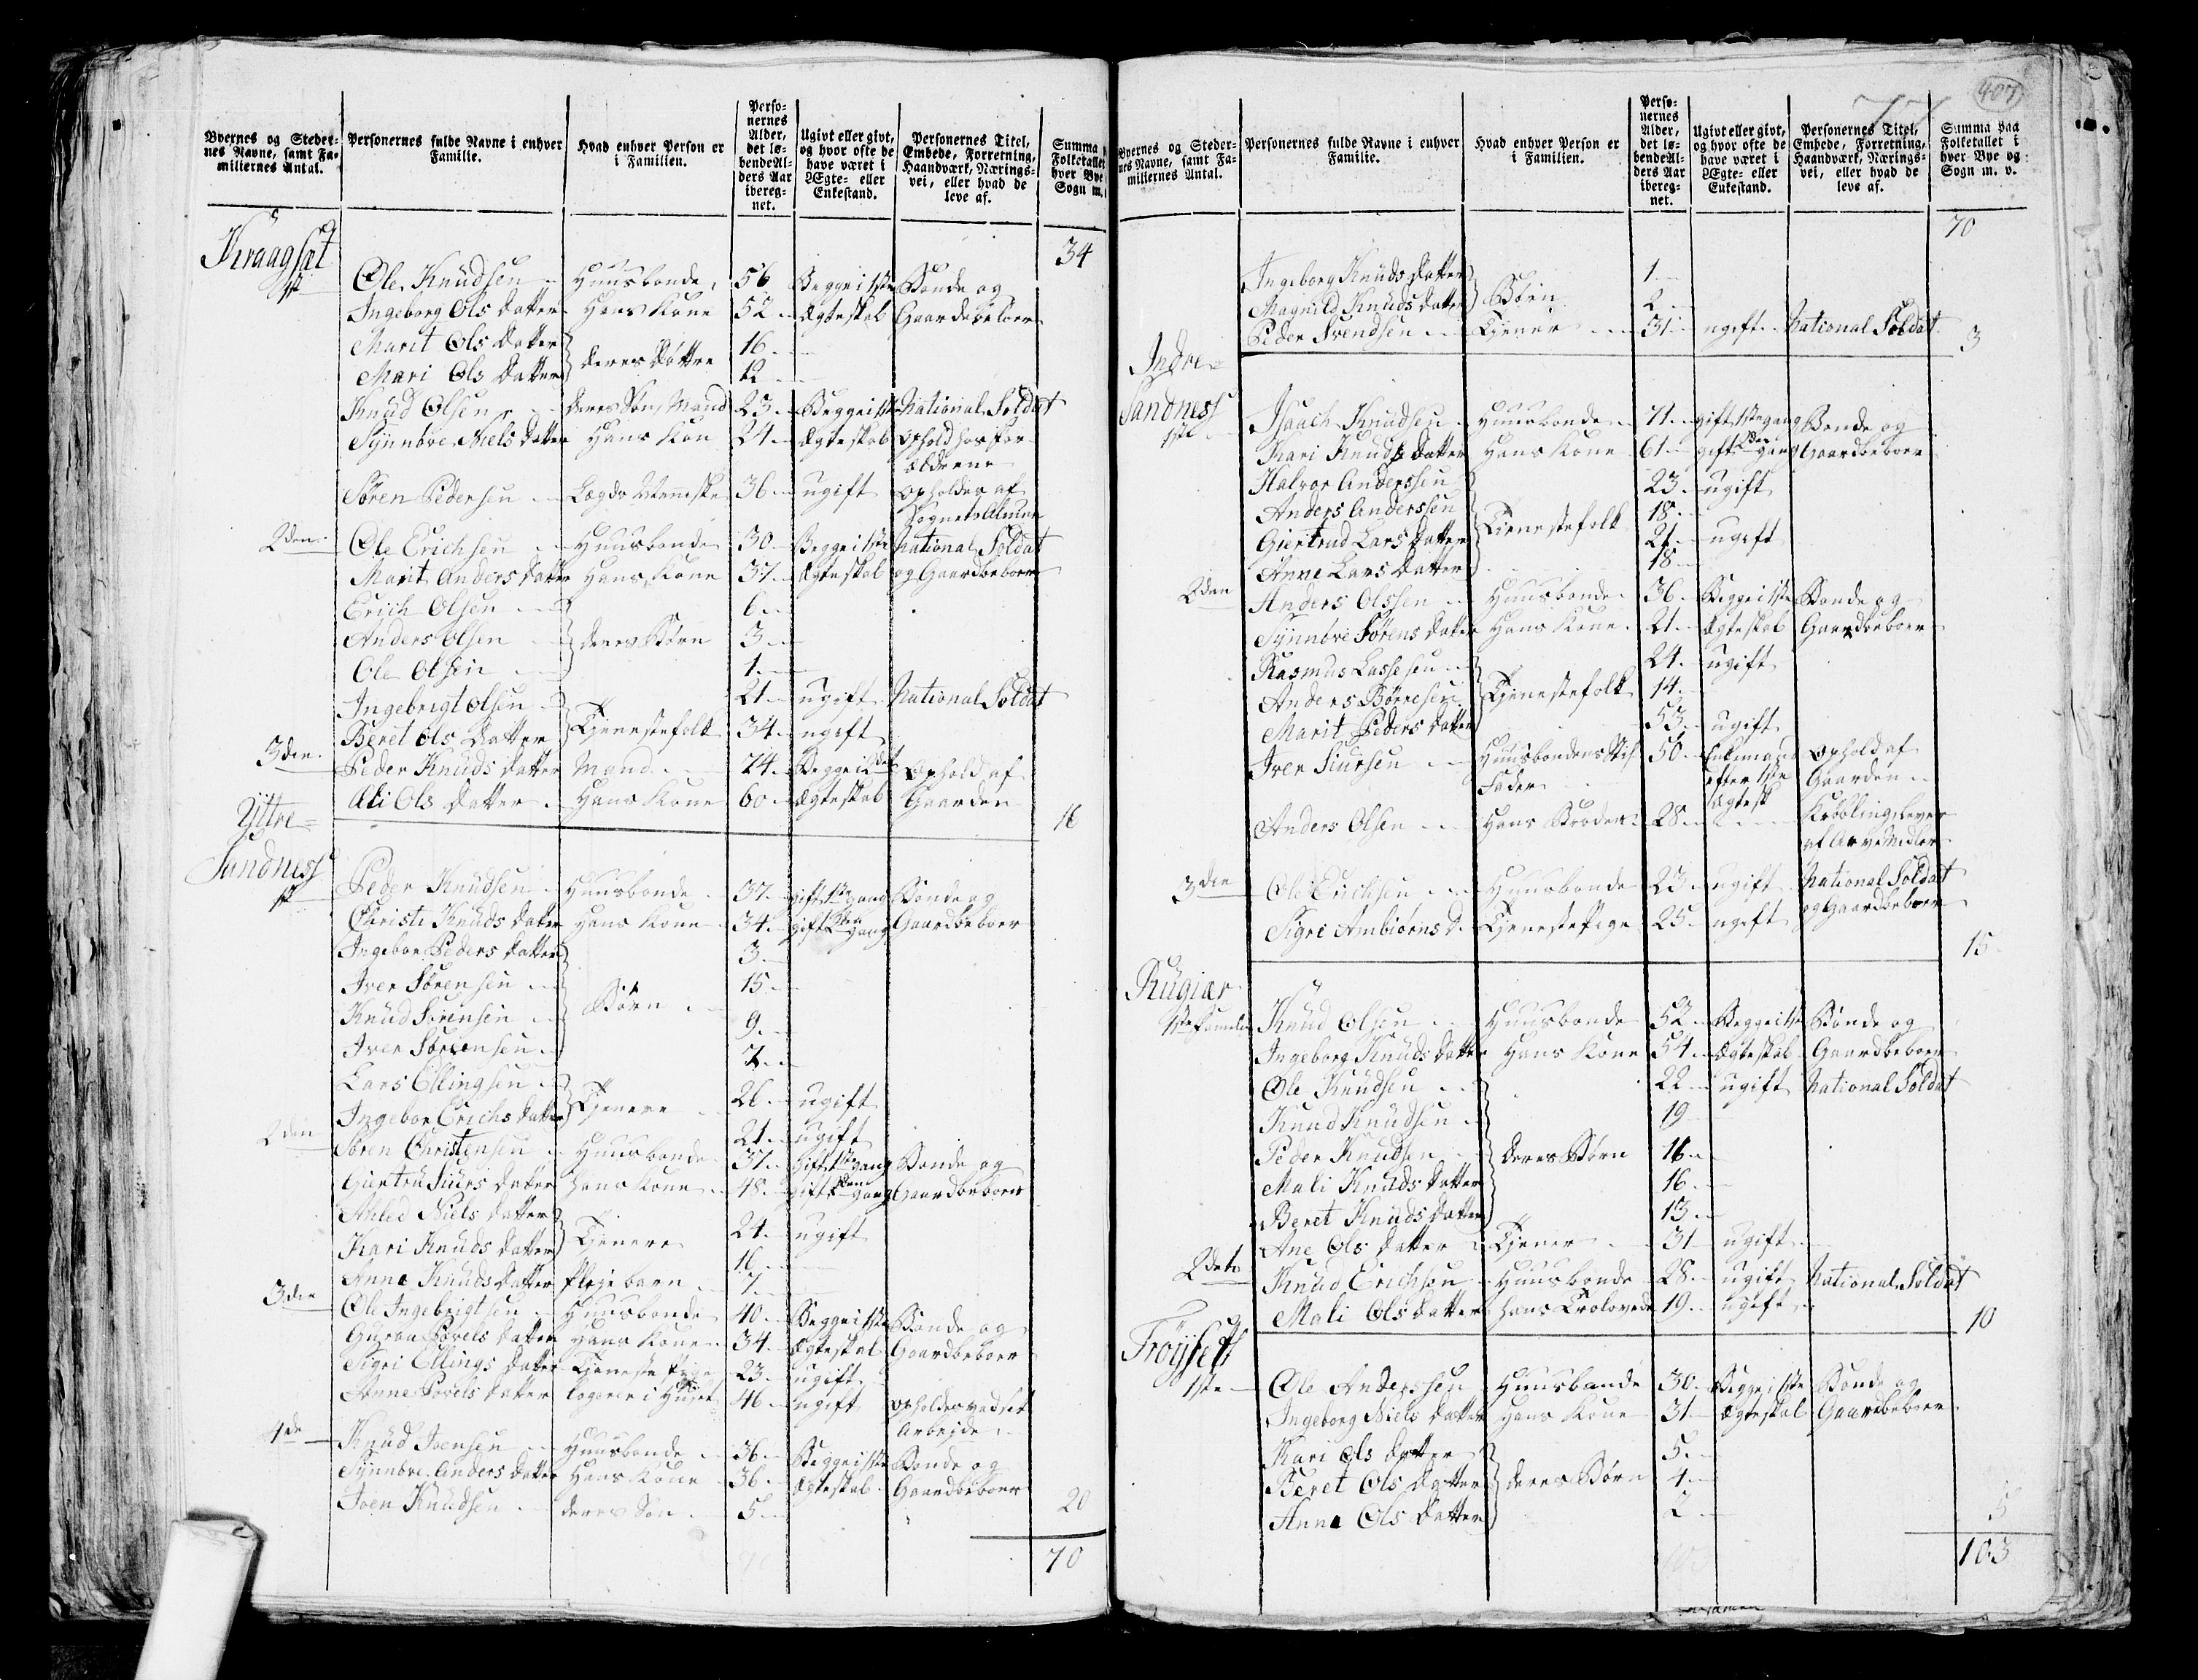 Byernes og Steder-
nes Navne, samt Fa-
miliernes Antal.
Personernes fulde Navne i enhver
Familie.
Hvad enhver Person er
i Familien.
Perso-
nernes
Alder,
det lø-
bende Al-
ders Aar
ibereg-
net.
Ugivt eller givt,
og hvor ofte de
have været i
Ægte- eller
Enkestand.
Personernes Titel,
Embede, Forretning,
Haandværk, Nærings-
vei, eller hvad de
leve af.
Summa
Folketallet
hver Bye
Sogn m.
Kraagset 34
1ste Ole Knudsen Huusbonde 56 Begge i 1ste Bonde og
Ingeborg Ols Datter Hans Kone 52 Ægteskab Gaardbeboer
Marit Ols Datter 16
Mari Ols Datter deres Døttre 12
Knud Olsen deres Søn, Mand 23 Begge i 1ste National Soldat
Synnøve Niels Datter Hans Kon 24 Ægteskab Ophold hos for-
ældrene
Søren Pedersen Lægds Menneske 36 ugift Opholdes af
Sognets Almue
2den Ole Erichsen Huusbonde 30 Begge i 1ste National Soldat
Marit Anders Datter Hans Kone 37 Ægteskab og Gaardbeboer
Erich Olsen 6
Anders Olsen deres Børn 3
Ole Olsen 1
Ingebrigt Olsen 21 ugift National Soldat
Beret Ols Datter Tjenestefolk 34 ugift
3die Peder Knuds Datter Mand 74 Begge i 2det Ophold af
Ali Ols Datter Hans Kone 60 Ægteskab Gaarden
Yttre 16
Sandness
1ste Peder Knudsen Huusbonde 37 gift 1ste gang Bonde og
Christi Knuds Datter Hans Kone 34 gift 2den gang Gaardbeboer
Ingebor Peders Datter 3
Iver Sørensen 15
Knud Sørensen Børn 9
Iver Sørensen 7
Lars Ellingsen 26 ugift
Ingebor Erichs Datter Tjenere 21 ugift
2den Søren Christensen Huusbonde 37 Gift 1ste gang Bonde og
Giertru Siurs Datter Hans Kone 48 gift 2den gang Gaardbeboer
Ahled Niels Datter 24 ugift
Kari Knuds Datter Tjenere 16
Anne Knuds Datter Plejebarn 7
3die Ole Ingebrigtsen Huusbonde 40 Begge i 1ste Bonde og
Guroa Povels Datter Hans Kone 34 Ægteskab Gaardbeboer
Sigri Ellings Datter Tjeneste Pige 23 ugift
Anne Povels Datter logerer i Huset 46 ugift opholdes ved sit
Arbejde
4de Knud Joensen Huusbonde 36 Begge i 1ste Bonde og
Synnøve Anders Datter Hans Kone 36 Ægteskab Gaardbeboer
Joen Knudsen deres Søn 5 20
70
77 407
Byernes og Steder-
nes Navne, samt Fa-
miliernes Antal.
Personernes fulde Navne i enhver
Familie.
Hvad enhver Person er
i Familien.
Perso-
nernes
Alder,
det lø-
bende Al-
ders Aar
ibereg-
net.
Ugivt eller givt,
og hvor ofte de
have været i
Ægte- eller
Enkestand.
Personernes Titel,
Embede, Forretning,
Haandværk, Nærings-
vei, eller hvad de
leve af.
Summa paa
Folketallet i
hver Bye og
Sogn m. v.
70
Ingeborg Knuds Datter 1
Magnild Knuds Datter Børn 2
Peder Svendsen Tjener 31 ugift National Soldat 3
Indre
Sandness
1ste Isaach Knudsen Huusbonde 71 gift 1ste gang Bonde og
Kari Knuds Datter Hans Kone 61 gift 2den gang Gaardbeboer
Halvor Anderssen 23 ugift
Anders Anderssen 18
Giertrud Lars Datter Tjenestefolk 21 ugift
Anne Lars Datter 18
2den Anders Olssen Huusbonde 36 Begge i 1ste Bonde og
Synnøve Sørens Datter Hans Kone 21 Ægteskab Gaardbeboer
Rasmus Lassesen 24 ugift
Anders Børresen Tjenestefolk 14
Marit Peders Datter 53 ugift
Iver Siursen Huusbondens Stif 50 Enkemand Ophold af
Fader efter 1ste Gaarden
Ægtesk
Anders Olsen Hans Broder 28 Krøbling, lever
af Arve Midler
3die Ole Erichsen Huusbonde 23 ugift National Soldat
og Gaardbeboer
Sigri Ambiørns D. Tjeneste Pige 25 ugift
15
Rugiær
1ste Familie Knud Olsen Huusbonde 52 Begge i 1ste Bonde og
Ingeborg Knuds Datter Hans Kone 54 Ægteskab Gaardbeboer
Ole Knudsen 22 ugift National Soldat
Knud Knudsen 19
Peder Knudsen deres Børn 16
Mali Knuds Datter 16
Beret Knuds Datter 13
Ane Ols Datter Tjener 31 ugift
2det Knud Erichsen Huusbonde 28 ugift National Soldat
Mali Ols Datter Hans Trolovede 19 ugift 10
Frøysett
1ste Ole Anderssen Huusbonde 30 Begge i 1ste Bonde og
Ingeborg Niels Datter Hans Kone 31 Ægteskab Gaardbeboer
Kari Ols Datter 5
Beret Ols Datter deres Børn 4
Anne Ols Datter 2 5
103